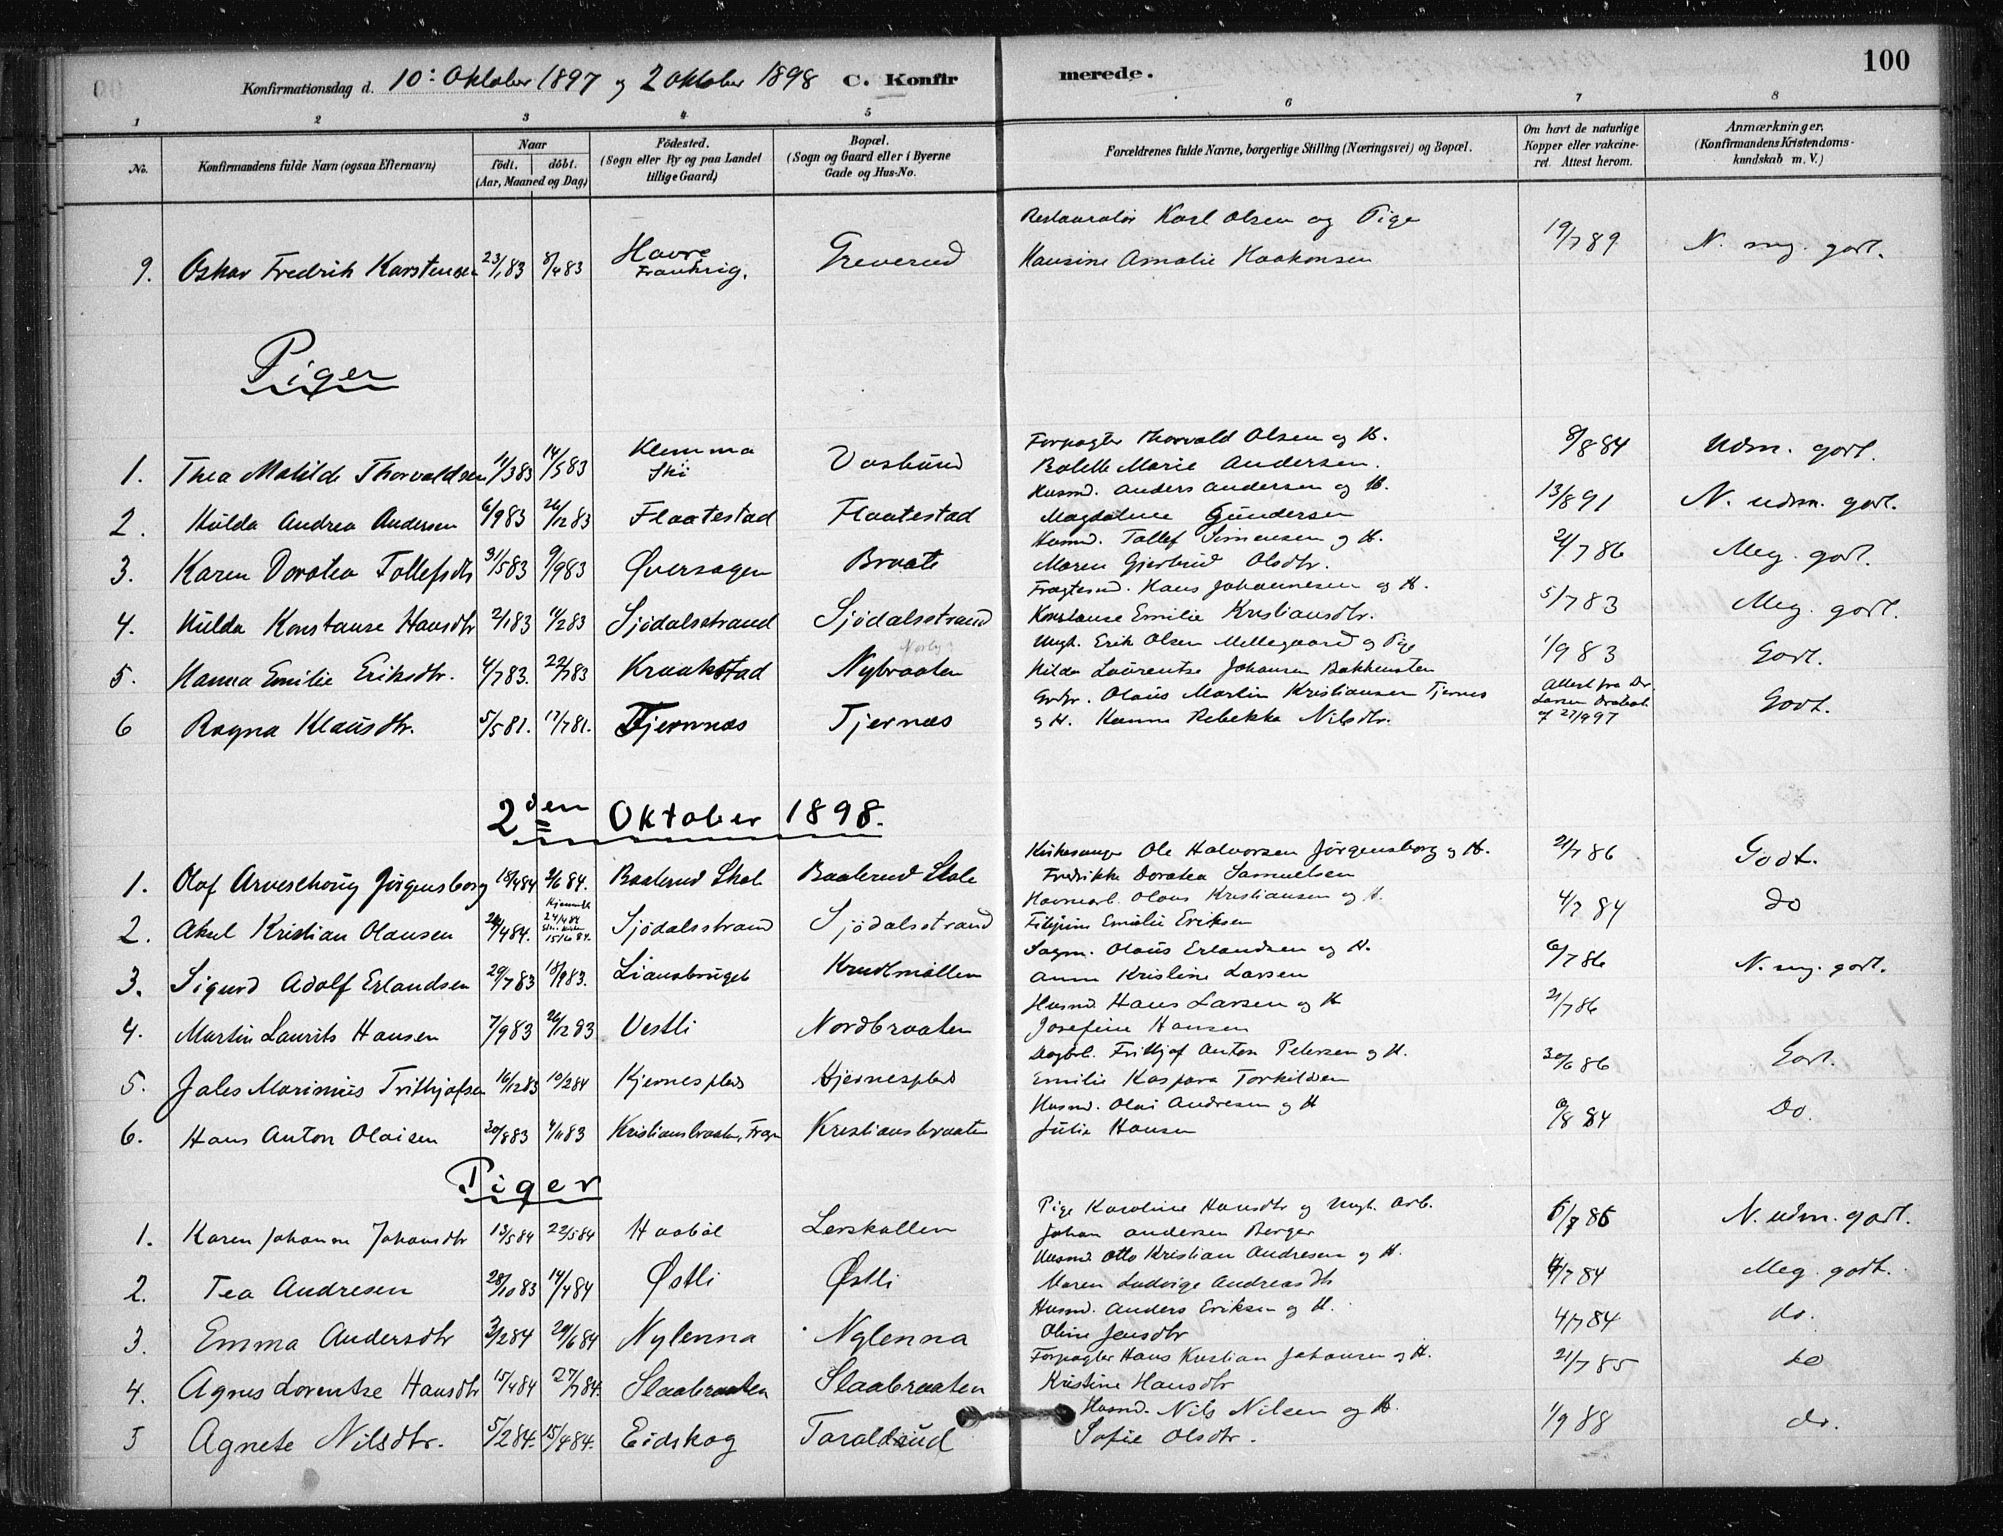 100
Konfirmationsdag d. 10: Oktober 1897 og 2 Oktober 1898 C. Konfirmerede.
1 2 3 4 5 6 7 8
No. Konfirmandens fulde Navn (ogsaa Efternavn) Naar födt. döbt. (Aar, Maaned og Dag) Födested. (Sogn eller By og paa Landet tillige Gaard) Bopæl. (Sogn og Gaard eller i Byerne Gade og Hus-No. Forældrenes fulde Navne, borgerlige Stilling (Næringsvei) og Bopæl. Om havt de naturlige Kopper eller vakcineret. Attest herom. Anmærkninger. (Konfirmandens Kristendomskundskab m. V.)
9. Oskar Fredrik Karstensen 23/1 83 8/4 83 Havre Frankrig. Greverud Restauratör Karl Olsen og Pige Hansine Amalie Haakonsen 19/7 89 N. mg. godt.
Piger
1. Thea Matilde Thorvaldsen 11/3 83 14/5 83 Klemma Ski Vasbund Forpagter Thorvald Olsen og H. Bolette Marie Andersen. 8/8 84 Udm. godt.
2. Hulda Andrea Andersen 6/9 83 26/12 83 Flaatestad Flaatestad Husmd. Anders Andersen og H. Magdalene Gundersen 13/8 91 N. udm. godt.
3. Karen Dorotea Tollefsdtr 31/5 83 9/9 83 Øversagen Braate Husmd. Tollef Simensen og H. Maren Gjertrud Olsdtr. 21/7 86 Meg. godt.
4. Hulda Konstanse Hansdtr 2/1 83 11/2 83 Sjödalsstrand Sjödalsstrand Fragtesmd. Hans Johannesen og H. Konstanse Emilie Kristiansdtr. 5/7 83 Meg. godt.
5. Hanna Emilie Eriksdtr. 4/7 83. 22/7 83 Kraakstad Nybraaten Norby Ungk. Erik Olsen Mellegaard og Pige Hilda Laurentse Johansen Bakkensten 1/9 83 Godt.
6 Ragna Klausdtr. 5/5 81. 17/7 81. Tjernnæs Tjernæs Gmbr. Olaus Martin Kristiansen Tjernes og H. Hanna Rebekka Nilsdtr. Attest fra Dr. Larsen Dröbak af 27/9 97 Godt.
2den Oktober 1898.
1. Olaf Arveschoug Jörgensborg 18/4 84 2/6 84. Baalerud Skol Baalerud Skole Kirkesanger Ole Halvorsen Jörgensborg og H. Fredrikke Dorotea Samuelsen 21/7 86 Godt.
2. Aksel Kristian Olausen 24/4 84. Hjemmed. 24/4 84 15/6 84. Sjödalsstrand Sjödalsstrand Havnearb. Olaus Kristiansen og H. Filipine Emilie Eriksen 4/7 84 do
3. Sigurd Adolf Erlandsen 29/7 83 18/9 83. Liansbruget Krudtmöllen Sagm. Olaus Erlandsen og H. Anna Kristine Larsen 6/7 86 N. mg. godt.
4. Martin Laurits Hansen 7/9 83 26/12 83 Vestli Nordbraaten Husmd. Hans Larsen og H Josefine Hansen 21/7 86
5. Jales Marinius Frithjofsen 16/12 83 10/2 84 Kjernesplds Hjernesplds Dagarb. Frithjof Anton Petersen og H. Emilie Kaspara Torkildsen 30/6 86 Godt.
6. Hans Anton Olaisen 30/8 83 4/11 83 Kristiansbraaten, Frogn Kristiansbraaten Husmd. Olai Andresen og H Julie Hansen 6/8 84 Do.
Piger
1. Karen Johanne Johansdtr 13/5 84 22/5 84 Haaböl Lerskallen Pige Karoline Hansdtr og Ungk. Arb. Johan Andersen Berger 5/7 86 N. udm. godt.
2. Tea Andresen 28/10 83 14/4 84 Østli Østli Husmd Otto Kristian Andresen og H. Maren Ludvige Andreasdtr 4/7 84 Meg. godt.
3. Emma Andersdtr 3/2 84 29/6 84 Nylenna Nylenna Husmd. Anders Eriksen og H. Oline Jensdtr 4/7 84 do.
4. Agnes Lorentse Hansdtr 15/4 84 27/7 84. Slaabraaten Slaabraaten Forpagter Hans Kristian Johansen og H. Kristine Hansdtr 21/7 85 do
5 Agnete Nilsdtr. 5/2 84. 15/4 84. Eidskog Taraldrud Husmd. Nils Nilsen og H. Sofie Olsdtr. 1/9 88 do.